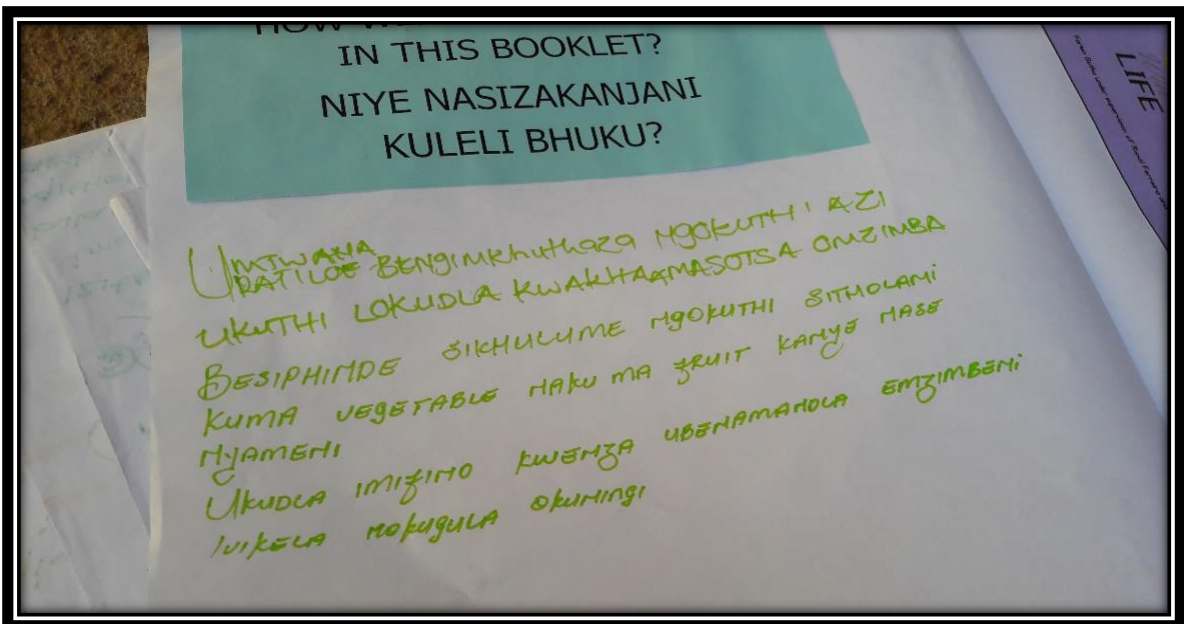 HOW W
IN THIS BOOKLET?
NIYE NASIZAKANJANI
KULELI BHUKU?
LIFE
UMTWANA
PATILOE BENGIMKHUTHAZA NGOKUTHI AZI
UKUTHI LOKUDLA KWAKHA AMASOTSA OMZIMBA
BESIPHINDE SIKHULUME NGOKUTHI SITHOLANI
KUMA VEGETABLE NAKU MA FRUIT KANYE NASE
NYAMENI
UKUDLA IMIFINO KWENZA UBENAMANDLA EMZIMBENI
IVIKELA NOKUGULA OKUNINGI